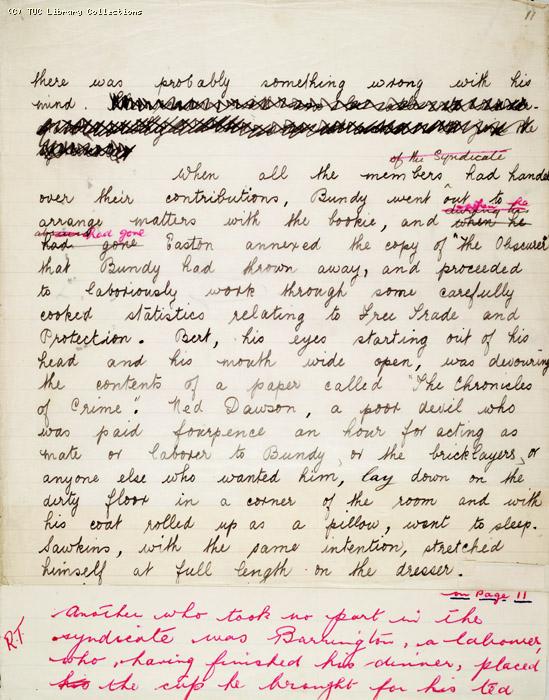 (C) TUC Library Collections
11
there was probably something wrong with his
mind.
the
of the Syndicate
When all the members had handed
over their contributions, Bundy went out to
arrange matters with the bookie, and when he
had gone
had gone Easton annexed the copy of "The Obscurer"
that Bundy had thrown away, and proceeded
to laboriously work through some carefully
cooked statistics relating to Free Trade and
Protection. Bert, his eyes starting out of his
head and his mouth wide open, was devouring
the contents of a paper called "The Chronicles
of Crime". Ned Dawson, a poor devil who
was paid fourpence an hour for acting as
mate or laborer to Bundy, or the bricklayers, or
anyone else who wanted him, lay down on the
dirty floor in a corner of the room and with
his coat rolled up as a pillow, went to sleep.
Sawkins, with the same intention, stretched
himself at full length on the dresser.
on Page 11
R.T.
Another who took no part in the
syndicate was Barrington, a labourer,
who, having finished his dinner, placed
the cup he brought for his tea